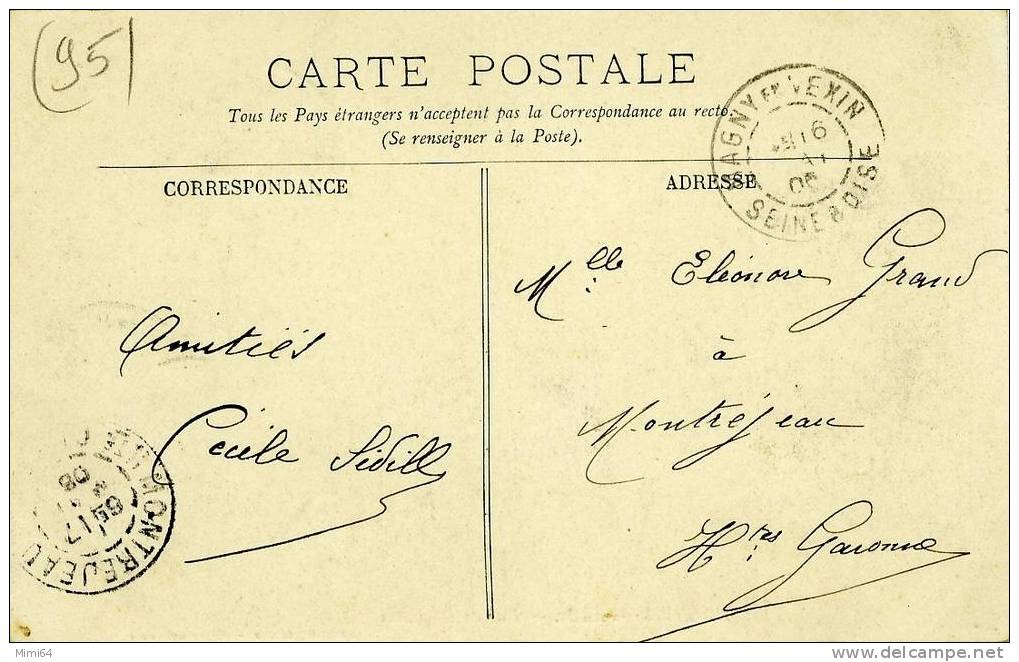 (95)
CARTE POSTALE
Tous les Pays étrangers n'acceptent pas la Correspondance au recto.
(Se renseigner à la Poste).
CORRESPONDANCE
ADRESSE
MAGNY EN VEXIN
16
SEINE & OISE
Mlle Eléonore Grand
à
Montréjeau
Hres Garonne
Amitiés
Cécile
MONTREJEAU
17
08
Mimi64
www.delcampe.net